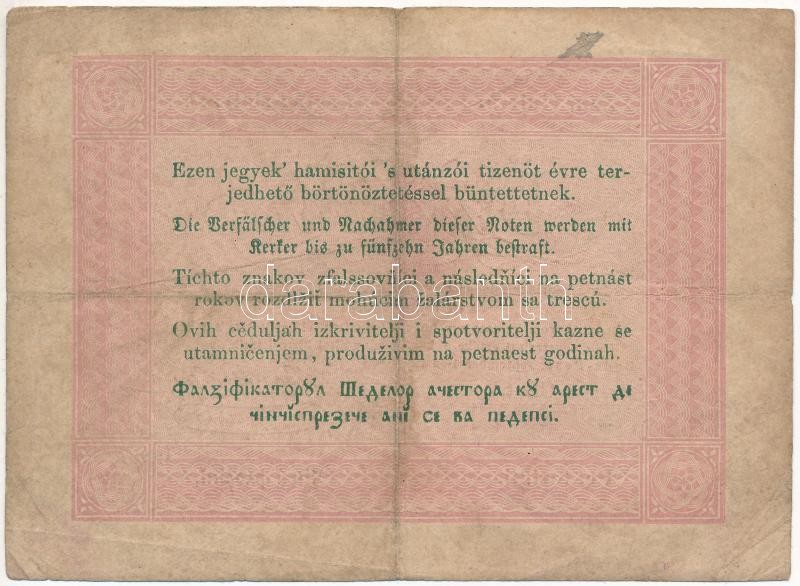 Ezen jegyek' hamisitói 's utánzói tizenöt évre ter-
jedhető börtönöztetéssel büntettetnek.
Die Verfälscher und Nachahmer dieser Noten werden mit
Kerker bis zu fünfzehn Jahren bestraft.
Tíchto znakov zfalssovňíci a násladňíci na petnást
rokov rozdlžiť mohúcim žalárstvom sa trescú.
Ovih cĕduljah izkrivitelji i spotvoritelji kazne se
utamničenjem, produživim na petnaest godinah.
Фалзіфікаторꙋл Шеделор ачестора кꙋ арест де
чінчĭспрезече анĭ се ва педепсі.
darabanth